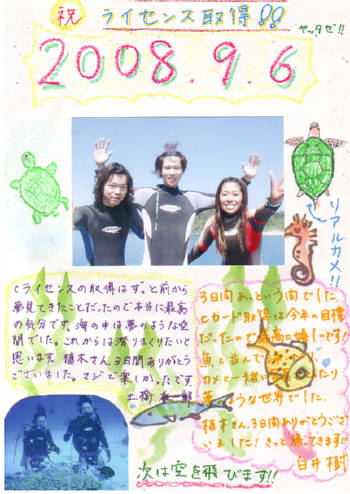 祝 ライセンス取得!!
ヤッタゼ!!
2008.9.6
リアルカメ!!
Cライセンスの取得はずっと前から
夢見てきたことだったので本当に最高
の気分です。海の中は夢のような空
間でした。これからは潜りまくりたいと
思います。植木さん3日間ありがとうご
ざいました。マジで楽しかったです。
3日間あっという間でした。
Cカード取得は今年の目標
だったので最高に嬉しいです!
魚と並んで
カメと一緒に
夢のような世界でした。
植木さん、3日間ありがとうござ
いました!きっと帰ってきます!!
臼井 樹
次は空を飛びます!!